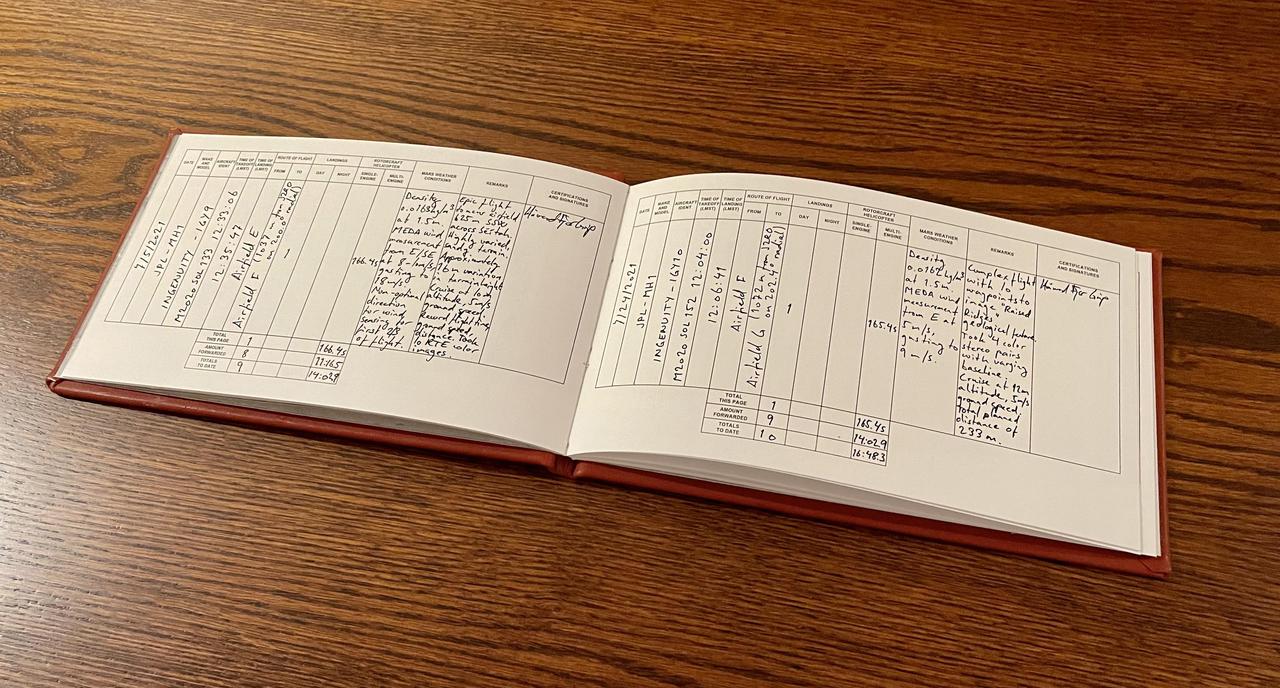 DATE
MAKE AND MODEL
AIRCRAFT IDENT
TIME OF TAKEOFF (LMST)
TIME OF LANDING (LMST)
ROUTE OF FLIGHT
FROM
TO
LANDINGS
DAY
NIGHT
ROTORCRAFT HELICOPTER
SINGLE-ENGINE
MULTI-ENGINE
MARS WEATHER CONDITIONS
REMARKS
CERTIFICATIONS AND SIGNATURES
7/5/2021
JPL-MH1
INGENUITY - IGY9
M2020 SOL 133 12:33:06
12:35:47
Airfield E
Airfield F
1
166.4s
Density
at 1.5m.
MEDA wind
measurement
from E/SE
at 8 m/s,
gusting to
18 m/s.
Non-optimal
direction
for wind
sensing for
first 1/2
of flight.
Epic flight
to new airfield
625m SSW
across Séítah.
Highly varied,
sandy terrain.
Approximately
16m variation
in terrain height.
Cruise at 10m
altitude, 5m/s
ground speed.
Record flight time,
ground speed,
distance. Took
10 RTE color
images.
TOTAL THIS PAGE
1
166.4s
AMOUNT FORWARDED
8
11:16.5
TOTALS TO DATE
9
14:02.9
DATE
MAKE AND MODEL
AIRCRAFT IDENT
TIME OF TAKEOFF (LMST)
TIME OF LANDING (LMST)
ROUTE OF FLIGHT
FROM
TO
LANDINGS
DAY
NIGHT
ROTORCRAFT HELICOPTER
SINGLE-ENGINE
MULTI-ENGINE
MARS WEATHER CONDITIONS
REMARKS
CERTIFICATIONS AND SIGNATURES
7/24/2021
JPL-MH1
INGENUITY - IGY10
M2020 SOL 152 12:04:00
12:06:41
Airfield F
Airfield G
1
165.4s
Density
0.0162 kg/m³
at 1.5m.
MEDA wind
measurement
from E at
5 m/s,
gusting to
9 m/s.
Complex flight
with 10
waypoints to
image "Raised
Ridges"
geological feature.
Took color
stereo pairs
with varying
baseline.
Cruise at 12m
altitude, 5m/s
ground speed,
total planned
distance of
233 m.
TOTAL THIS PAGE
1
165.4s
AMOUNT FORWARDED
9
14:02.9
TOTALS TO DATE
10
16:48.3